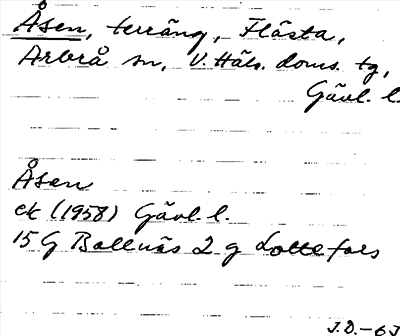 Åsen, terräng, Flästa,
Arbrå sn, V. Häls. doms. tg,
Gävl. l.
Åsen
ek (1958) Gävl. l.
15 G Bollnäs 2 g Lottefors
J.D.-63